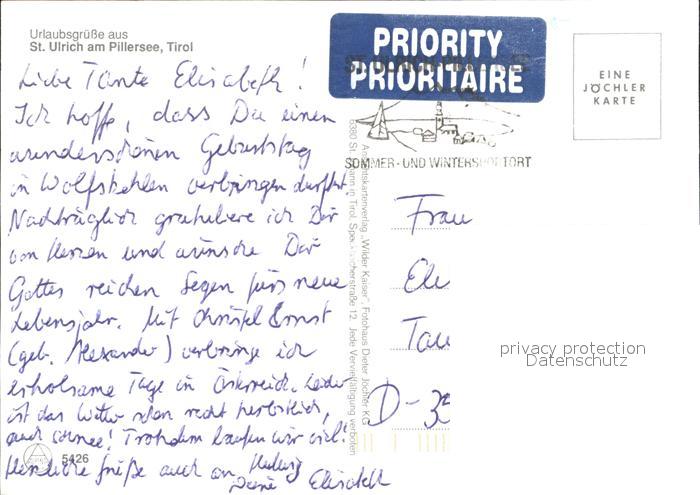 Urlaubsgrüße aus
St. Ulrich am Pillersee, Tirol
Liebe Tante Elisabeth!
Ich hoffe, dass Du einen
wunderschönen Geburtstag
in Wolfskehlen verbringen durftest.
Nachträglich gratuliere ich Dir
von Herzen und wünsche Dir
Gottes reichen Segen fürs neue
Lebensjahr. Mit Christel Ernst
(geb. Alexander) verbringe ich
erholsame Tage in Österreich. Leider
ist das Wetter schon recht herbstlich,
auch Schnee! Trotzdem laufen wir viel!
Herzliche Grüße auch an Hedwig
Deine Elisabeth
5426
PRIORITY
PRIORITAIRE
SOMMER- UND WINTERSPORTORT
EINE
JÖCHLER
KARTE
Ansichtskartenverlag „Wilder Kaiser“, Fotohaus Dieter Jöchler KG
6380 St. Johann in Tirol, Speckbacherstraße 12. Jede Vervielfältigung verboten
Frau
Eli
Tau
D-3
privacy protection
Datenschutz